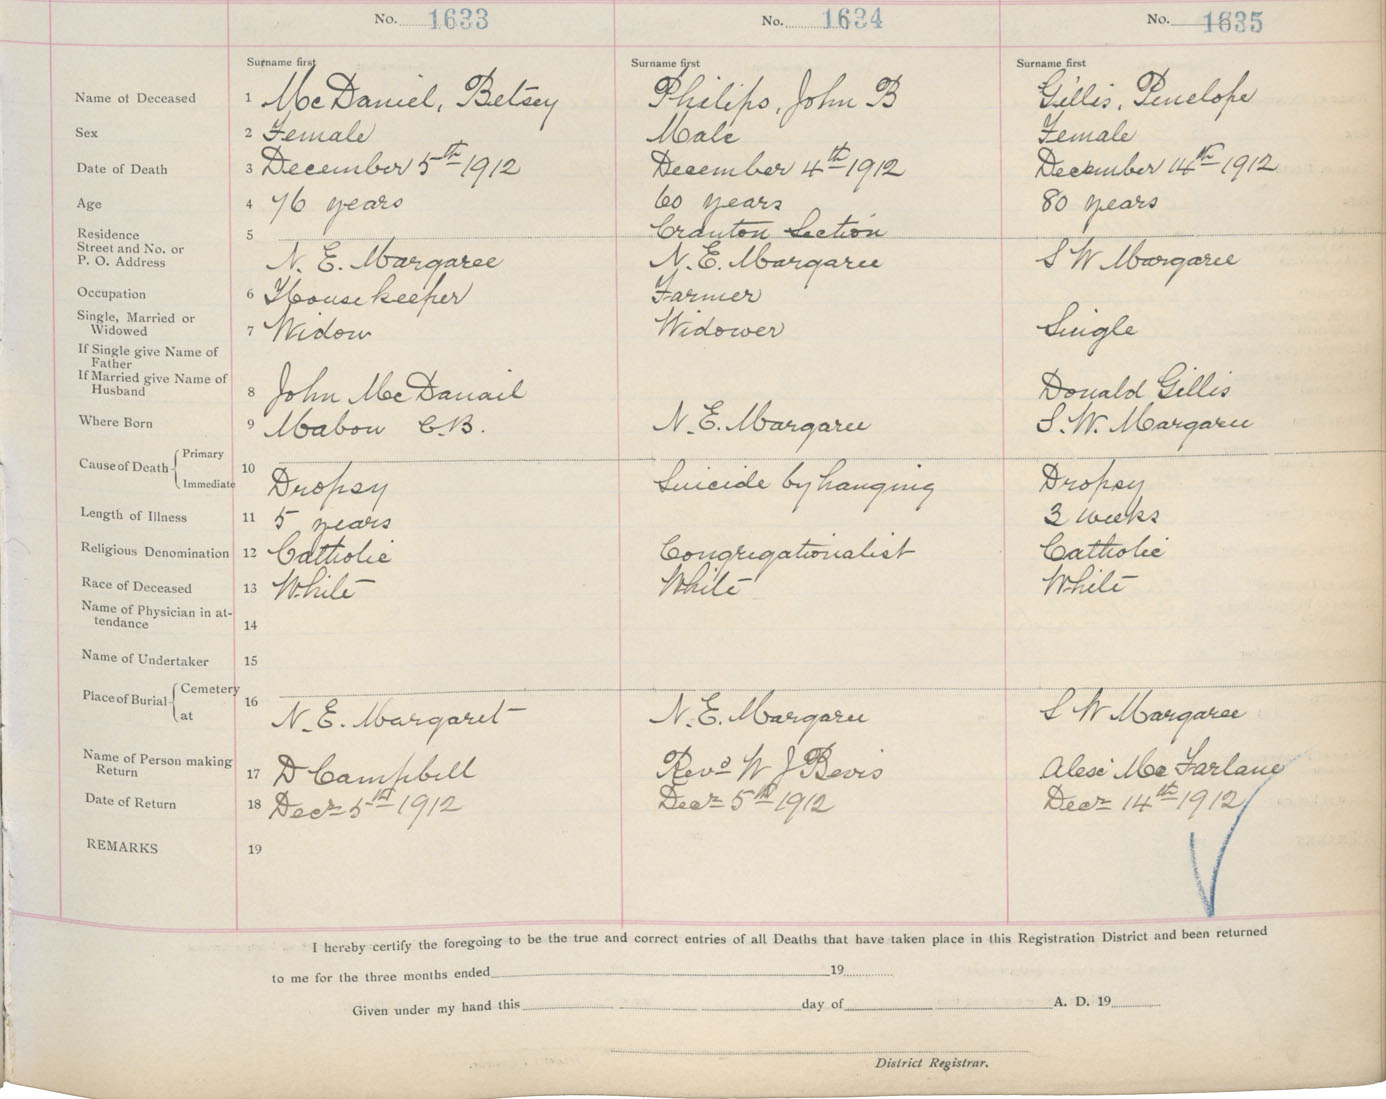 No. 1633 No. 1634 No. 1635
Surname first Surname first Surname first
Name of Deceased 1 McDaniel, Betsey Philips, John B Gillis, Penelope
Sex 2 Female Male Female
Date of Death 3 December 5th 1912 December 4th 1912 December 14th 1912
Age 4 76 years 60 years 80 years
Residence 5 Cranton Section
Street and No. or
P. O. Address N. E. Margaree N. E. Margaree S W Margaree
Occupation 6 Housekeeper Farmer
Single, Married or
Widowed 7 Widow Widower Single
If Single give Name of
Father
If Married give Name of
Husband 8 John McDanail Donald Gillis
Where Born 9 Mabou C.B. N. E. Margaree S. W. Margaree
Cause of Death Primary
Immediate 10 Dropsy Suicide by hanging Dropsy
Length of Illness 11 5 years 3 weeks
Religious Denomination 12 Catholic Congregationalist Catholic
Race of Deceased 13 White White White
Name of Physician in at-
tendance 14
Name of Undertaker 15
Place of Burial Cemetery
at 16 N. E. Margaret N. E. Margaree S W Margaree
Name of Person making
Return 17 D Campbell Revd W J Bevis Alexr McFarlane
Date of Return 18 Decr 5th 1912 Decr 5th 1912 Decr 14th 1912
REMARKS 19
I hereby certify the foregoing to be the true and correct entries of all Deaths that have taken place in this Registration District and been returned
to me for the three months ended 19
Given under my hand this day of A. D. 19
District Registrar.